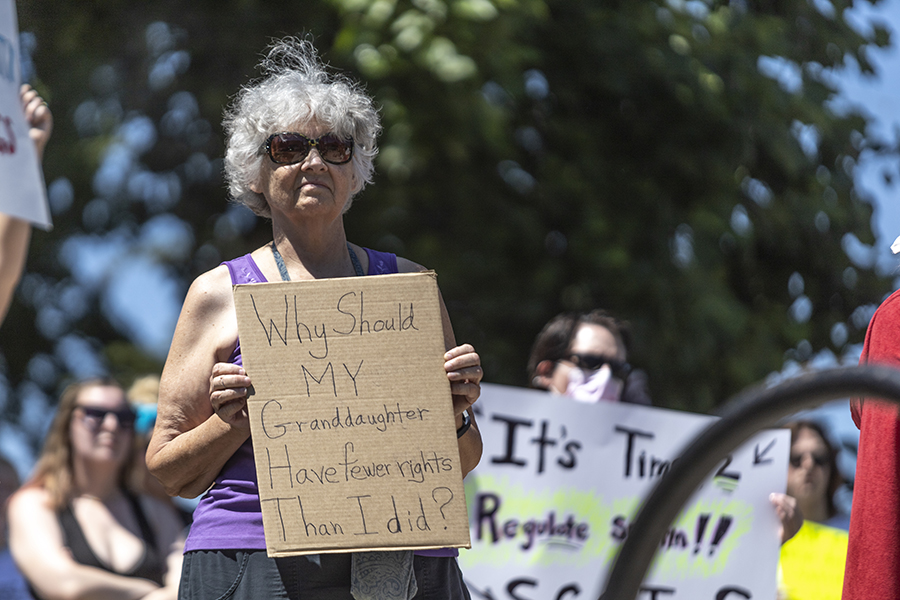 Why Should
MY
Granddaughter
Have fewer rights
Than I did?
It's Time 2
Regulate
!!